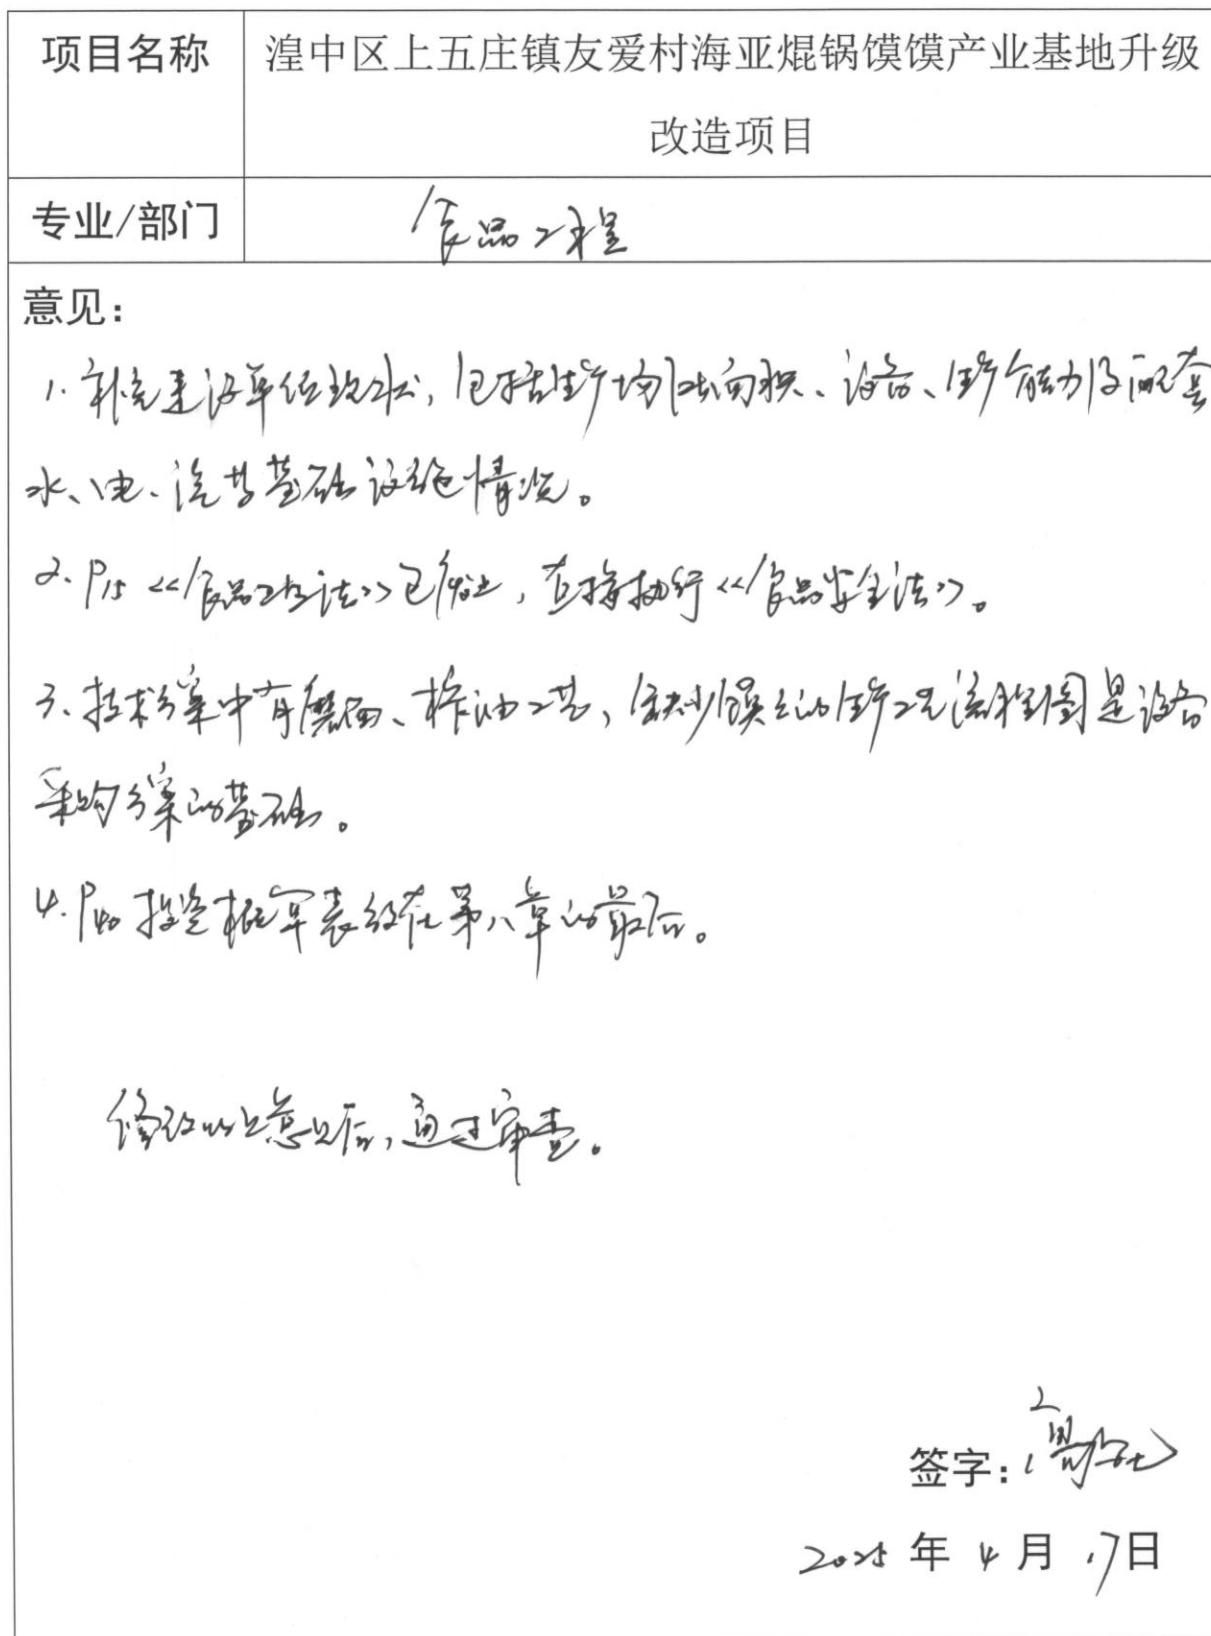 项目名称 湟中区上五庄镇友爱村海亚焜锅馍馍产业基地升级
改造项目
专业/部门 食品工程
意见：
1. 补充建设单位现状，包括生产场所面积、设备、生产能力及配套
水、电、汽等基础设施情况。
2. P15 《食品卫生法》已废止，直接执行《食品安全法》。
3. 技术方案中有磨面、榨油工艺，缺少馍馍的生产工艺流程图是设备
采购方案的基础。
4. P40 投资概算表放在第八章的最后。
修改以上意见后，通过审查。
签字：
2025 年 4 月 17日